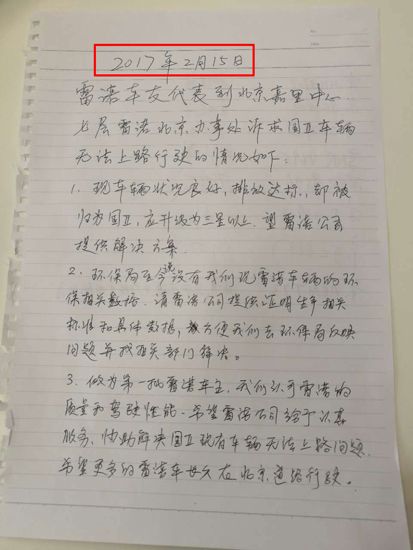 2017年2月15日
雷诺车友代表到北京嘉里中心
七层雷诺北京办事处诉求国Ⅱ车辆
无法上路行驶的情况如下:
1、现车辆状况良好,排放达标,却被
归为国Ⅱ,应升级为三星以上.望雷诺公司
提供解决方案.
2、环保局至今没有我们现雷诺车辆的环
保相关数据.请雷诺公司提供证明生产相关
标准和具体数据,方便我们去环保局反映
问题并找相关部门解决。
3、做为第一批雷诺车主,我们认可雷诺的
质量和驾驶性能.希望雷诺公司给予认真
服务、协助解决国Ⅱ现有车辆无法上路问题.
希望更多的雷诺车 在北京道路行驶。